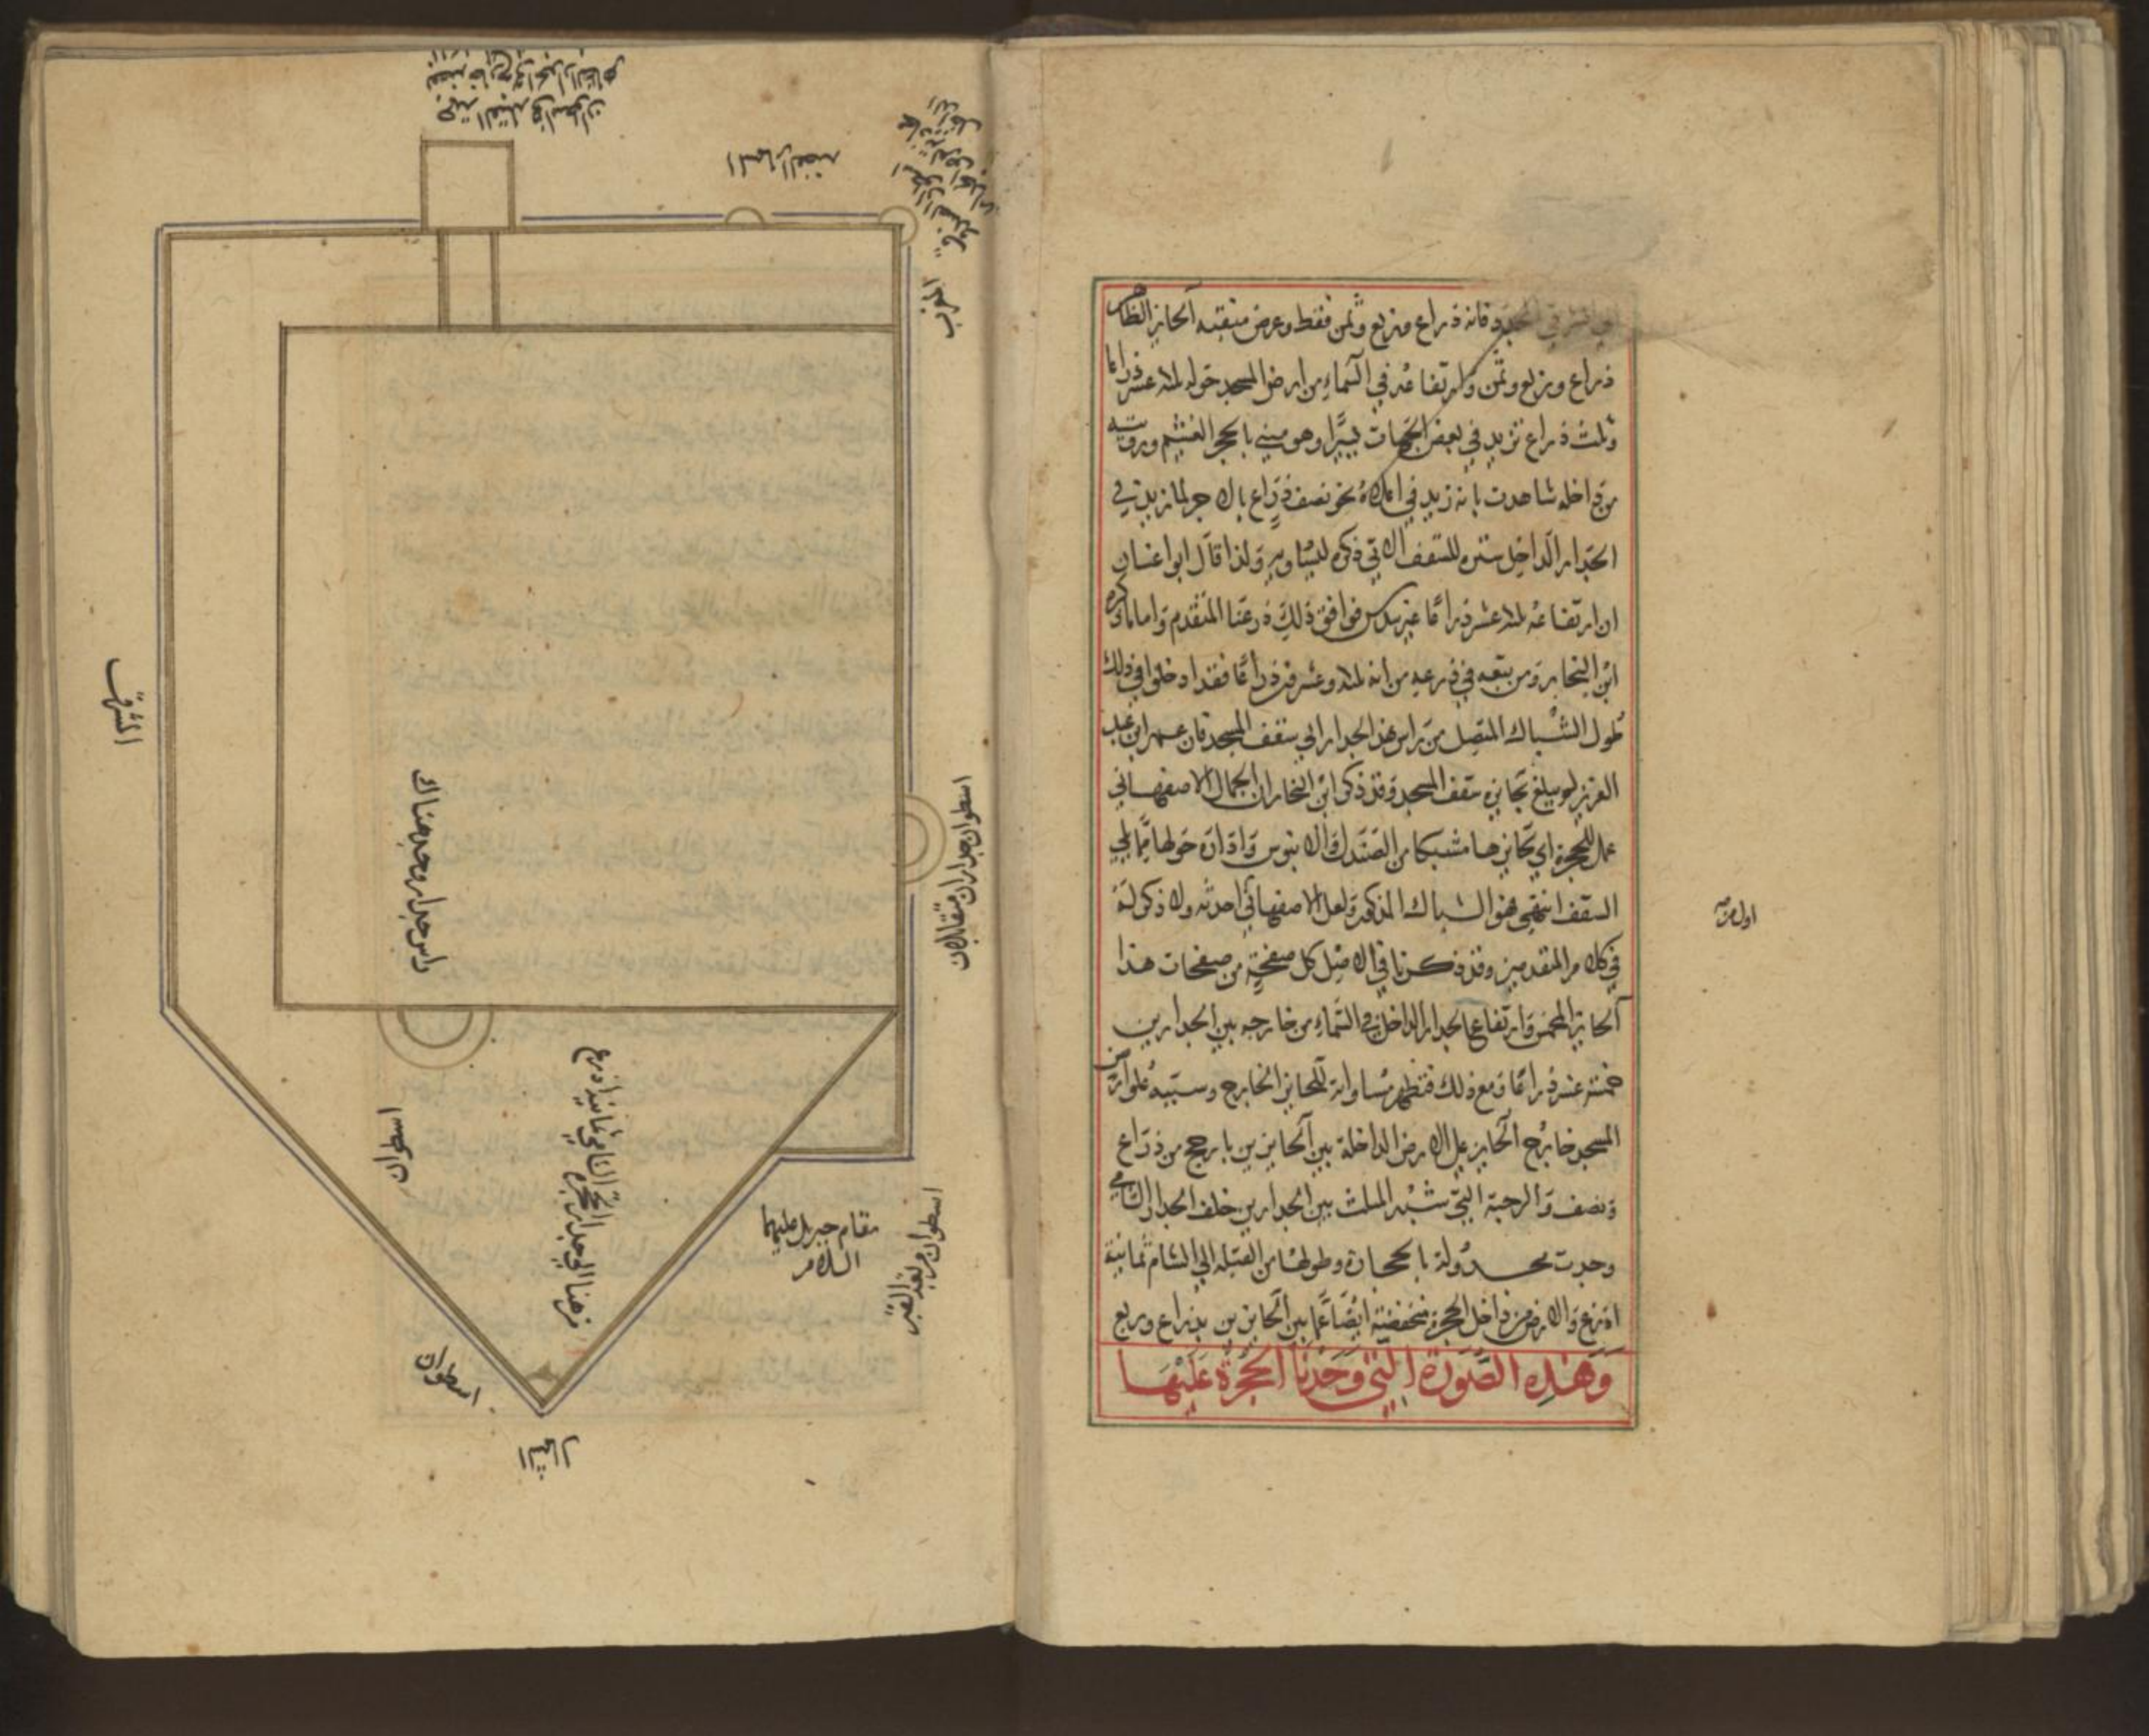 فانه ذراع وربع وثمن فقط وعرض منقبه الحايز الظاهر
ذراع وربع وثمن وارتفاعه في السماء من ارض المسجد حوله ثلاثة عشر ذراعا
وثلث ذراع تزيد في بعض الجهات يسيرا وهو مبني بالحجر
من داخله شاهدت بانه زيد في اعلاه نحو نصف ذراع بالاجر لما زيد في
الجدار الداخل سترة للسقف الاتي ذكره ليساويه ولذا قال ابو اغسان
ان ارتفاعه ثلاثة عشر ذراعا غير سدس فوافق ذلك ذرعنا المتقدم واما ما ذكره
ابن النجار ومن تبعه في ذرعه من انه ثلاثة وعشرون ذراعا فقد ادخلوا في ذلك
طول الشباك المتصل من راس هذا الجدار الي سقف المسجد فان عمر ابن عبد
العزيز لم يبلغ بحايزه سقف المسجد وقد ذكر ابن النجار ان الجمال الاصفهاني
عمل للحجرة اي لحايزها مشبكا من الصندل والابنوس واداره حولها مما يلي
السقف انتهي فهو الشباك المذكور ولعل الاصفهاني احدثه ولا ذكر له
في كلام المتقدمين وقد ذكرنا في الاصل كل صفحة من صفحات هذا
الحايز المخمس وارتفاع الجدار الداخل في السماء من خارجه بين الجدارين
خمسة عشر ذراعا ومع ذلك فتظهر مساواته للحايز الخارج وسببه علو ارض
المسجد خارج الحايز علي الارض الداخلة بين الحايزين بارجح من ذراع
ونصف والرحبة التي شبه المثلث بين الجدارين خلف الجدار الشامي
وجدت محدولة بالحجارة وطولها من القبلة الي الشام ثمانية
اذرع والارض من داخل الحجرة منخفضة ايضا عما بين الحايزين بذراع وربع
وهذه الصورة التي وجدنا الحجرة عليها
جهة القبلة
المسمار الفضة
المغرب
المشرق
راس جدار وجد هناك
اسطوان جداران متقابلان
اسطوان
من هنا الي جدار الحجرة الشامي ثمانية اذرع
مقام جبريل عليهما
السلام
اسطوان مربعة القبر
اسطوان
الشمال